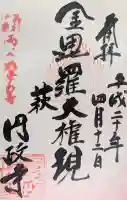 奉拝
平成二十年
四月十三日
金毘羅大権現
萩
円政寺